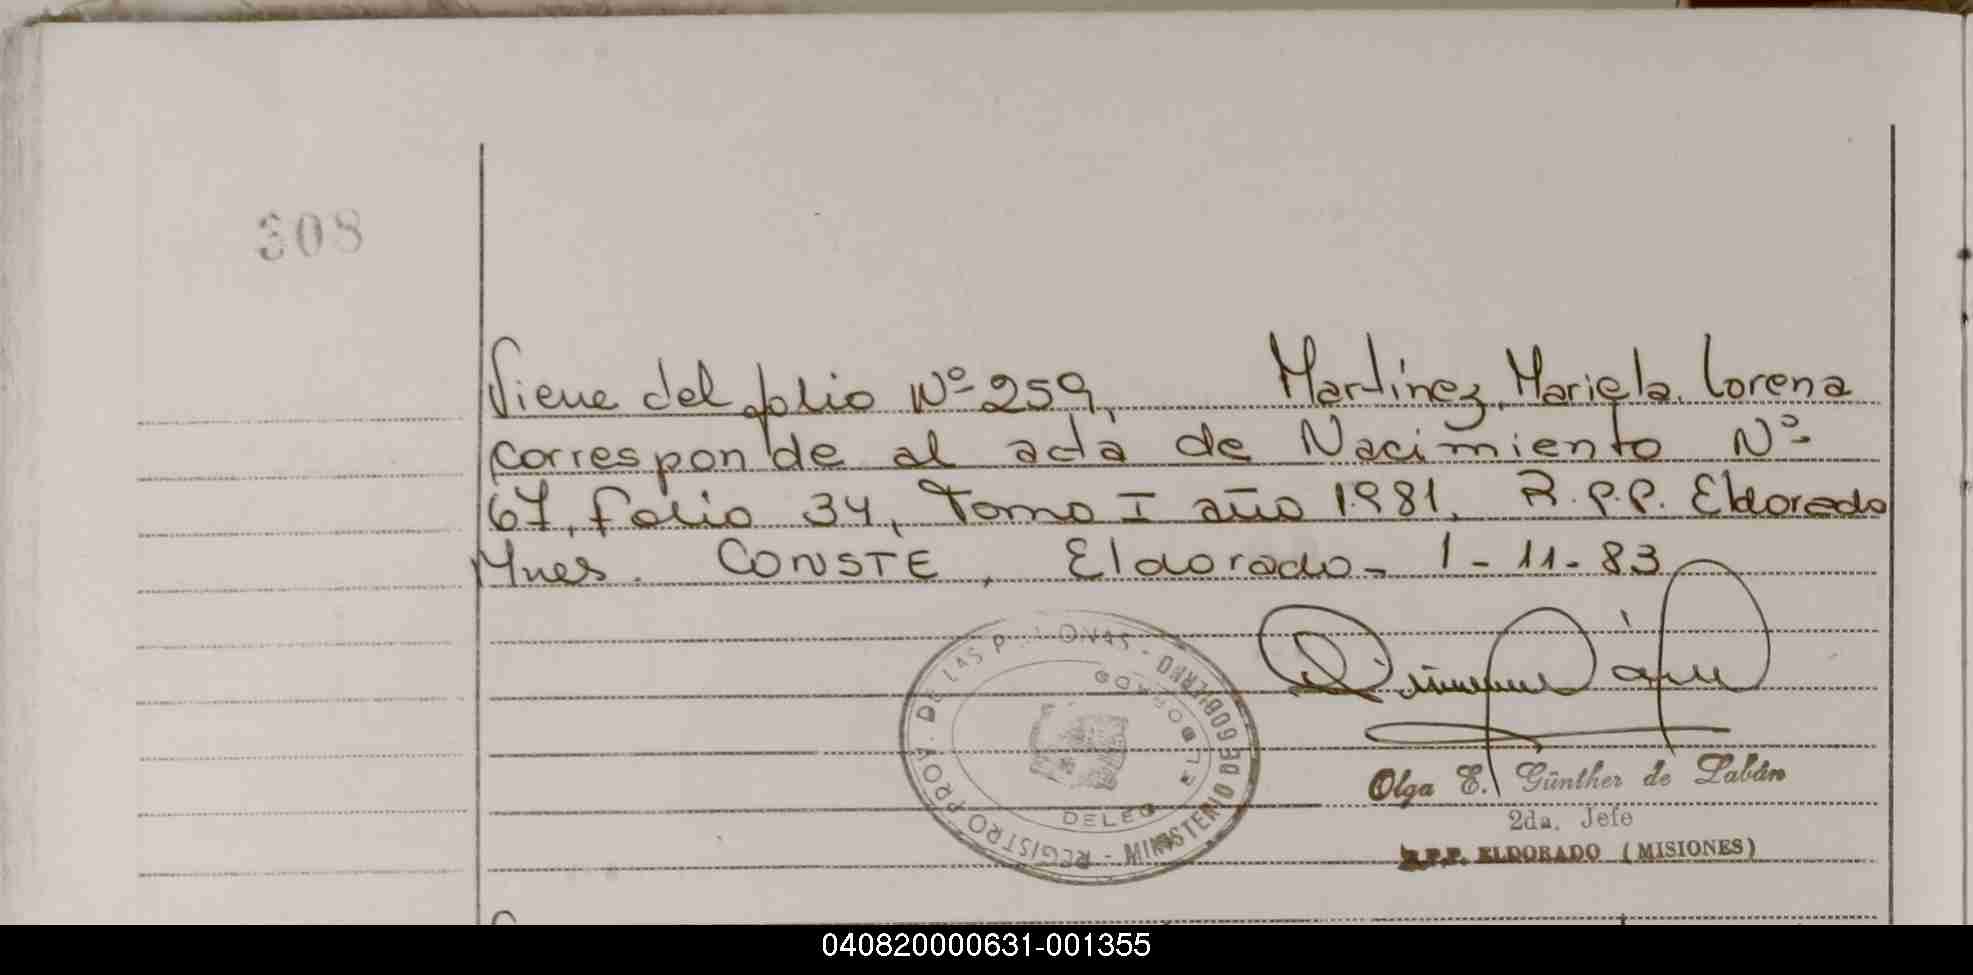 308
Viene del folio Nº 259, Martínez, Mariela Lorena
corresponde al acta de Nacimiento Nº
67, folio 34, Tomo I año 1981, R.P.P. Eldorado
Mnes. CONSTE, Eldorado - 1 - 11 - 83
REGISTRO PROV. DE LAS P ONAS - MINISTERIO DE GOBIERNO
DELEG ELDORADO
Olga E. Günther de Labán
2da. Jefe
R.P.P. ELDORADO (MISIONES)
040820000631-001355